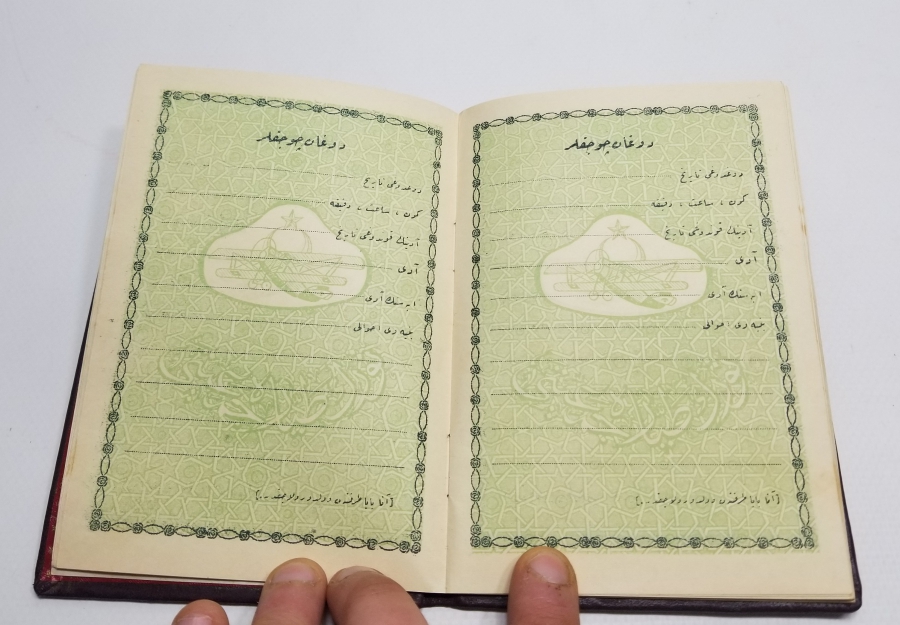 دوغان چوجقلر
دوغدوغی تاریخ
كون ، ساعت ، دقیقه
آدینك قوندوغی تاریخ
آدی
ابه سنك آدی
جبه دی احوالی
[آنا بابا طرفندن دولدورولاجقدر..]
دوغان چوجقلر
دوغدوغی تاریخ
كون ، ساعت ، دقیقه
آدینك قوندوغی تاریخ
آدی
ابه سنك آدی
جبه دی احوالی
[آنا بابا طرفندن دولدورولاجقدر..]